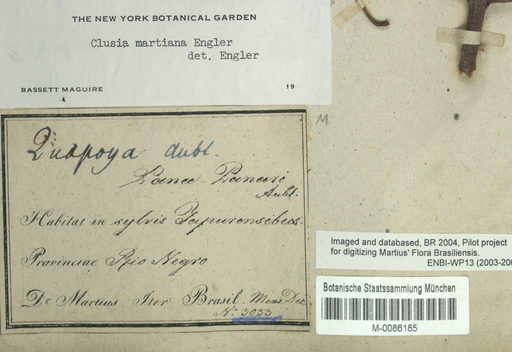 THE NEW YORK BOTANICAL GARDEN
Clusia martiana Engler
det. Engler
BASSETT MAGUIRE 19
M
Quapoya Aubl.
Panari
Aubl.
Habitat in sylvis Japurensibus.
Provinciae Rio Negro
Dr Martius Iter Brasil. Mens. Dec.
No 3033
Imaged and databased, BR 2004, Pilot project
for digitizing Martius' Flora Brasiliensis.
ENBI-WP13 (2003-200
Botanische Staatssammlung München
M-0086185